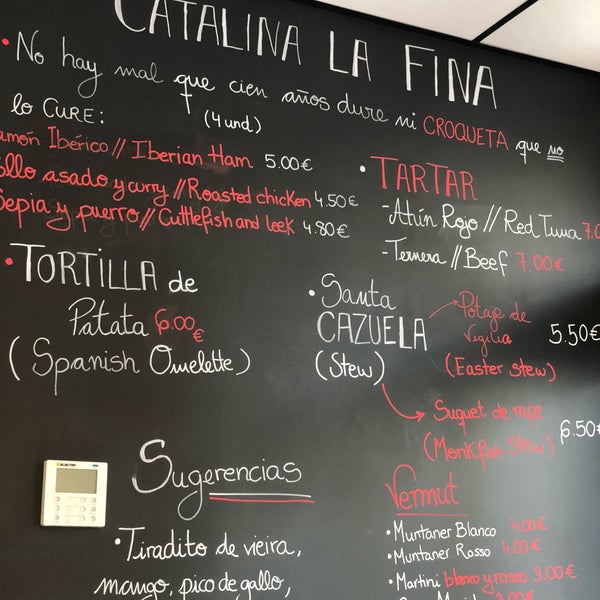 CATALINA LA FINA
• No hay mal que cien años dure ni CROQUETA que no
lo CURE: (4 und)
Jamón Ibérico // Iberian Ham 5.00€
Pollo asado y curry // Roasted chicken 4.50€
Sepia y puerro // Cuttlefish and leek 4.80€
• TARTAR
- Atún Rojo // Red Tuna 7.0
- Ternera // Beef 7.00€
• TORTILLA de
Patata 6.00€
(Spanish Omelette)
• Santa
CAZUELA
(Stew)
Potaje de
Vigilia 5.50€
(Easter stew)
Suquet de rape
(Monkfish Stew) 6.50€
ELECTRA
Sugerencias
• Tiradito de vieira,
mango, pico de gallo,
Vermut
• Muntaner Blanco 4.00€
• Muntaner Rosso 4.00€
• Martini blanco y rosso 3.00€